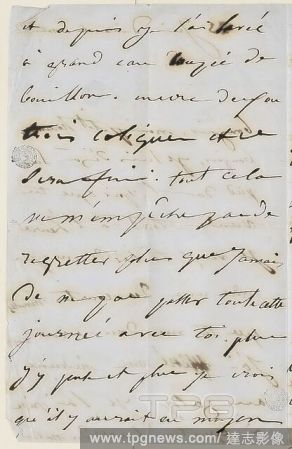 et depuis je t'ai lavé
à grand eau
bouillon. encore deux ou
trois et ce
sera fini. tout cela
ne m'empêche pas de
regretter plus que jamais
de ne pas passer toute cette
journée avec toi. plus
j'y pense et plus je crois
qu'il y aurait eu moyen
TPG
www.tpgnews.com / 達志影像